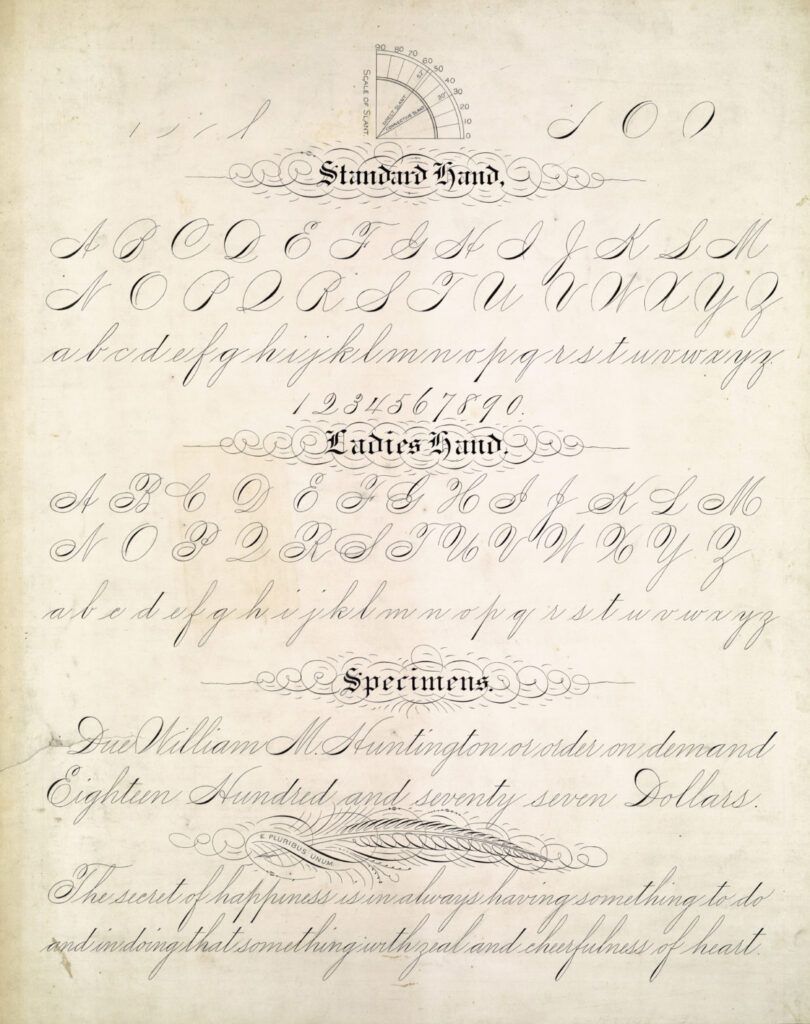 90 80 70 60 50 40 30 20 10 0
52°
30°
SCALE OF SLANT.
DIRECT SLANT
CONNECTIVE SLANT
Standard Hand.
A B C D E F G H I J K L M
N O P Q R S T U V W X Y Z
a b c d e f g h i j k l m n o p q r s t u v w x y z
1 2 3 4 5 6 7 8 9 0.
Ladies Hand.
A B C D E F G H I J K L M
N O P Q R S T U V W X Y Z
a b c d e f g h i j k l m n o p q r s t u v w x y z
Specimens.
Due William M. Huntington or order on demand
Eighteen Hundred and seventy seven Dollars.
E PLURIBUS UNUM
The secret of happiness is in always having something to do
and in doing that something with zeal and cheerfulness of heart.